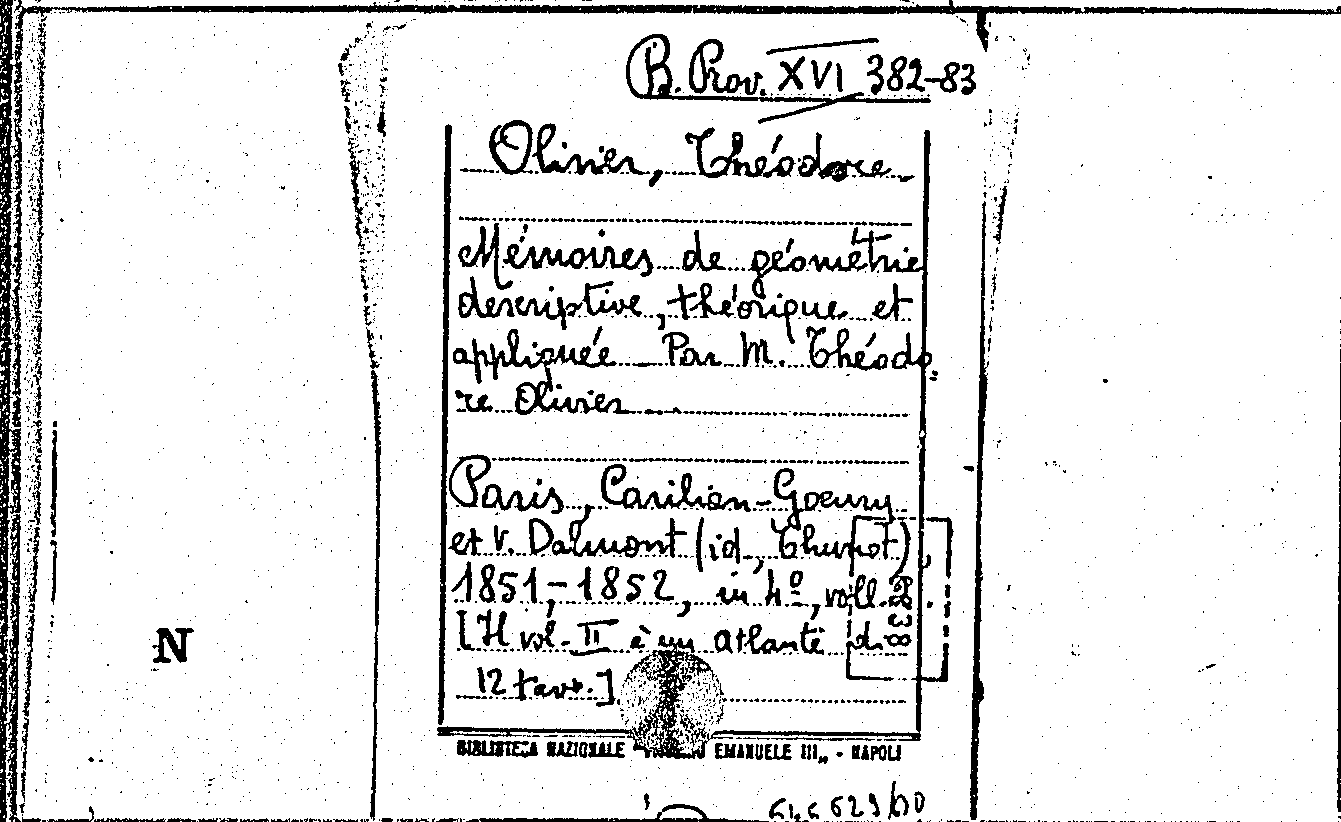 B. Prov. XVI 382-83
Olivier, Théodore
Mémoires de géométrie
descriptive, théorique et
appliquée Par M. Théodo
re Olivier
Paris, Carilian-Goeury
et V. Dalmont (id., Thunot),
1851-1852, in 4º, voll. 2.
[Il vol. II è un atlante di
12 tavv.]
83
N
BIBLIOTECA NAZIONALE " EMANUELE III„ - NAPOLI